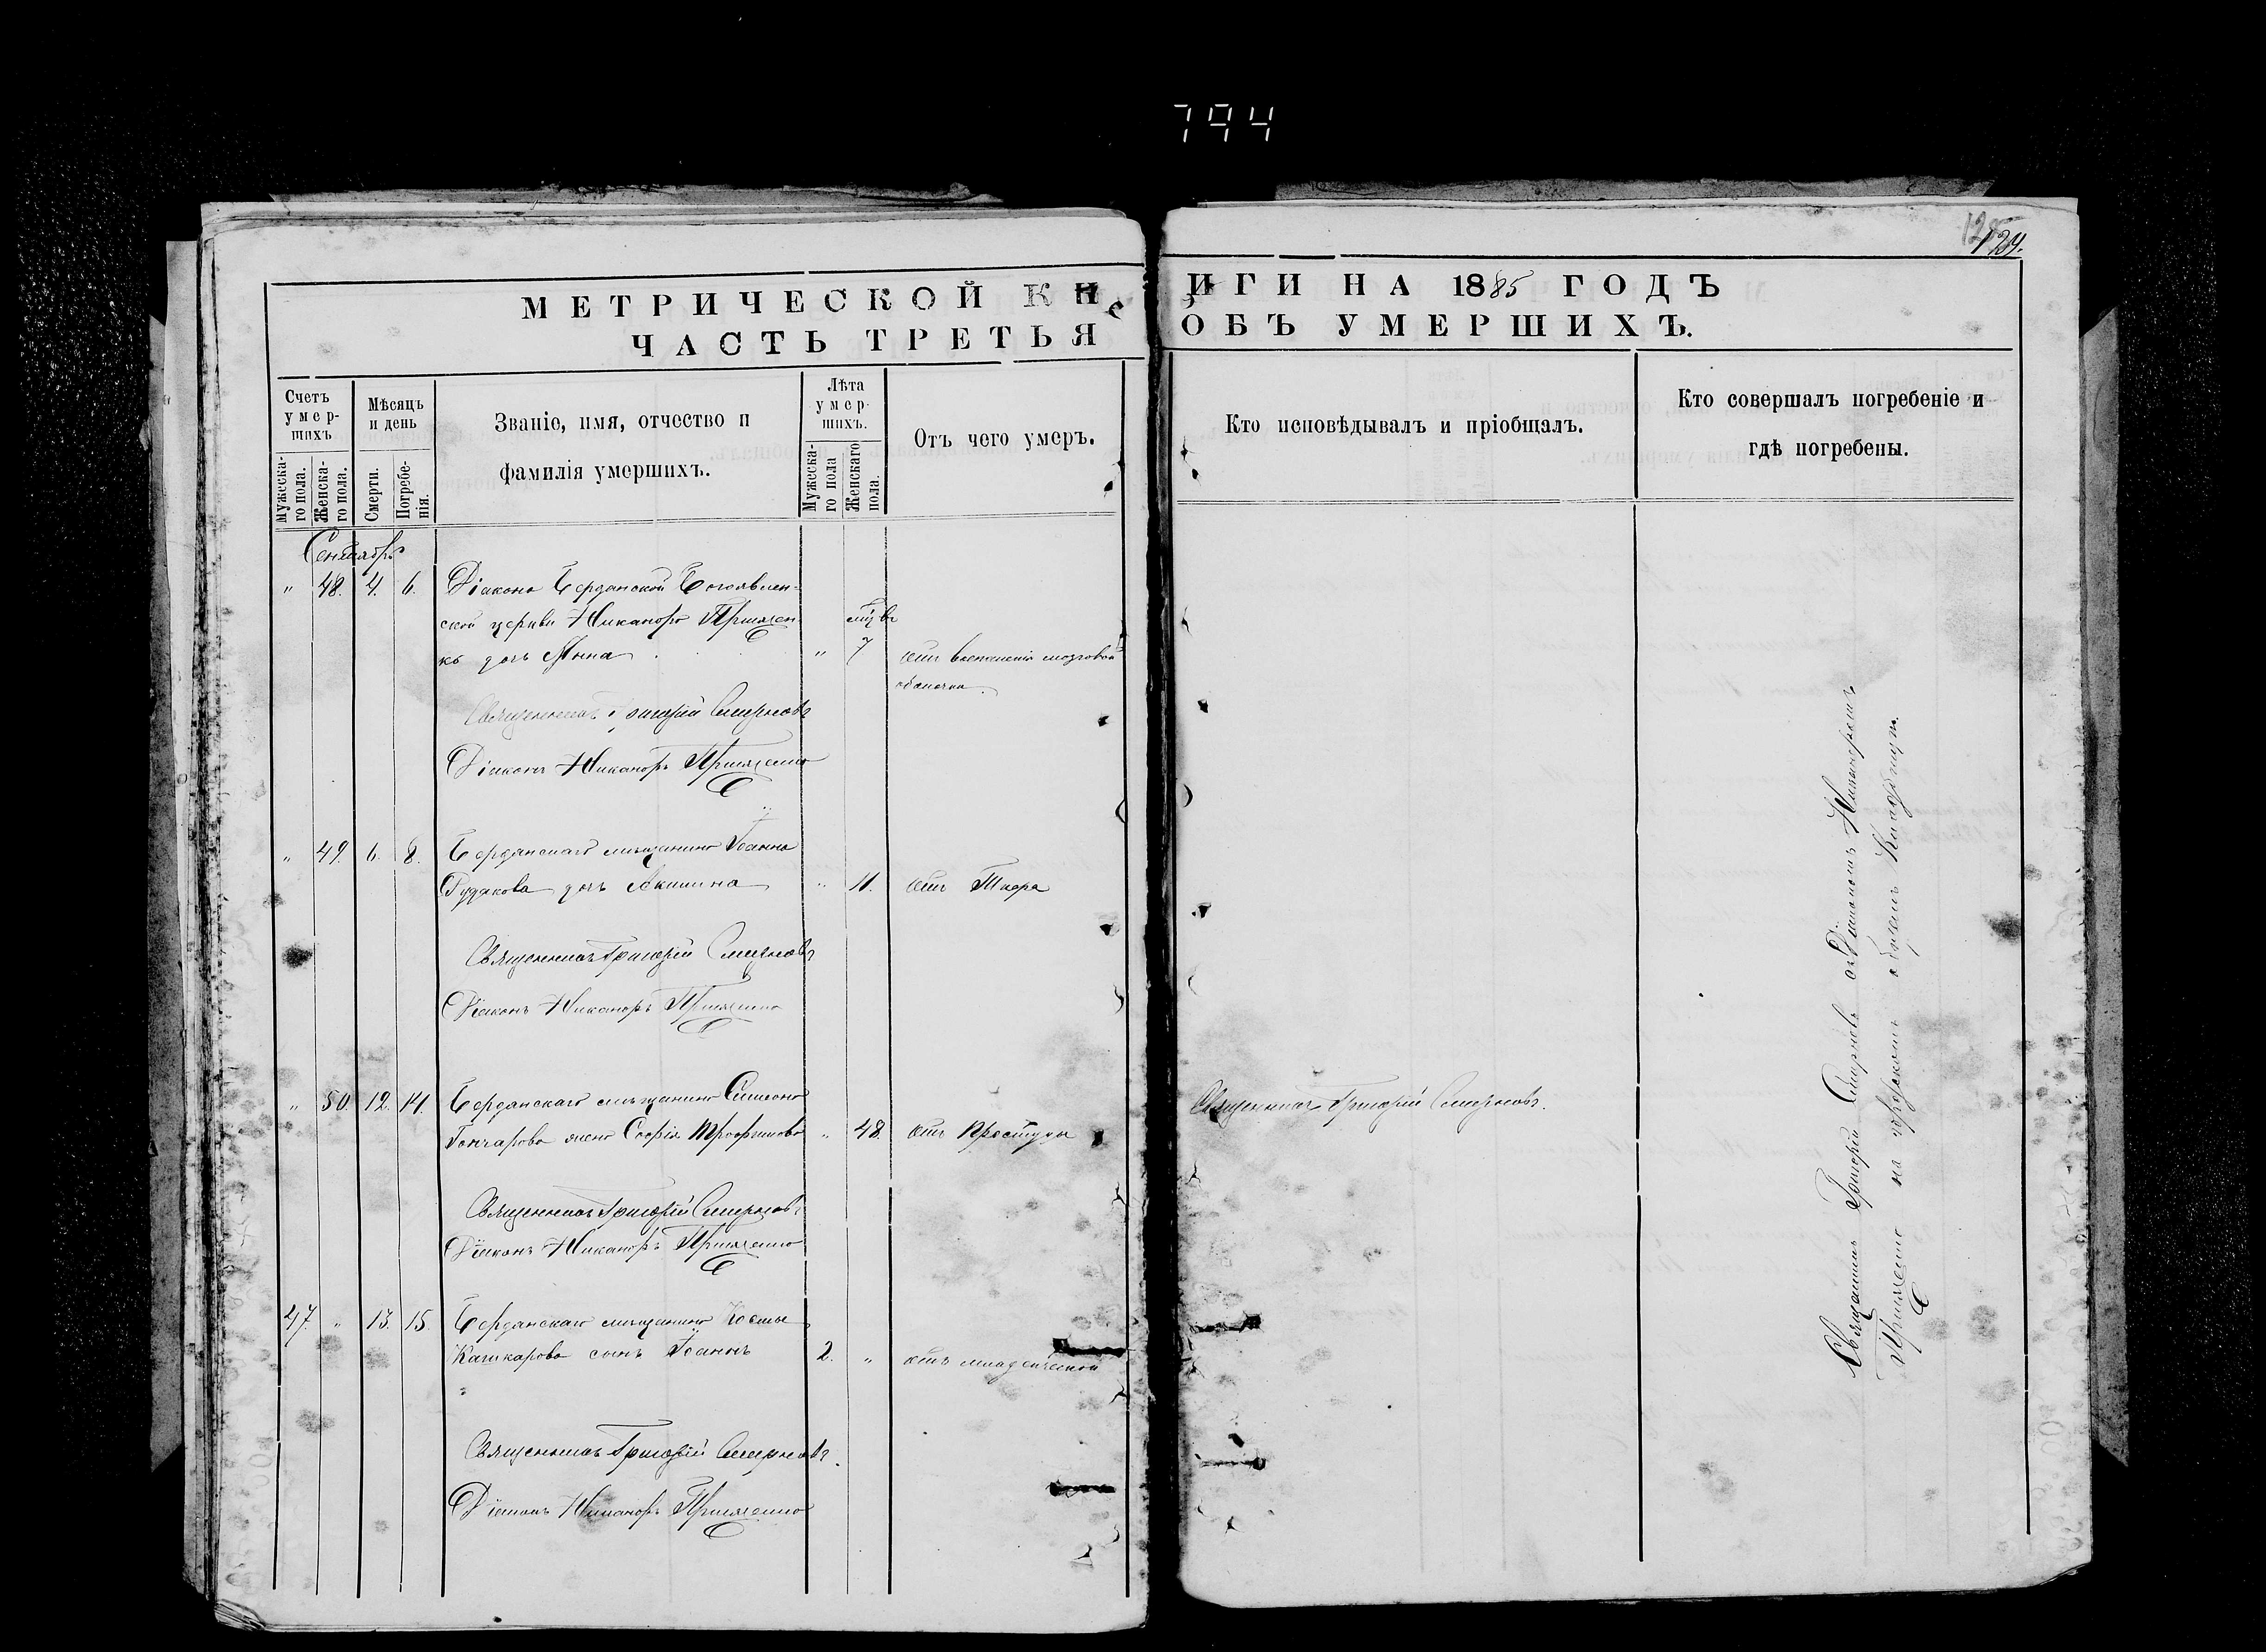 794
124.
МЕТРИЧЕСКОЙ КНИГИ НА 1885 ГОДЪ
ЧАСТЬ ТРЕТЬЯ ОБЪ УМЕРШИХЪ.
Счетъ умер-шихъ
Мужеска-го пола.
Женска-го пола.
Мѣсяцъ и день
Смерти.
Погребе-нія.
Званіе, имя, отчество и
фамилія умершихъ.
Лѣта умер-шихъ.
Мужеска-го пола
Женскаго пола.
Отъ чего умеръ.
Кто исповѣдывалъ и пріобщалъ.
Кто совершалъ погребеніе и
гдѣ погребены.
Сентябрь
" 48. 4. 6. Діакона Бердянской Богоявлен-
ской церкви Никанора
дочь Анна " 7 отъ воспаленія мозговой
оболочки.
Священникъ Григорій Смирновъ
Діаконъ Никаноръ
" 49. 6. 8. Бердянскаго мѣщанина Іоанна
Рудакова дочь Акилина " 11. отъ Тифа
Священникъ Григорій Смирновъ
Діаконъ Никаноръ
" 50. 12. 14. Бердянскаго мѣщанина Симеона
Гончарова жена Софія Трофимова " 48. отъ Простуды
Священникъ Григорій Смирновъ.
Священникъ Григорій Смирновъ
Діаконъ Никаноръ
47. " 13. 15. Бердянскаго мѣщанина Космы
Кашкарова сынъ Іоаннъ 2. " отъ младенческой
Священникъ Григорій Смирновъ.
Діаконъ Никаноръ
Священникъ Григорій Смирновъ съ Діакономъ Никаноромъ
на городскомъ общемъ Кладбищѣ.